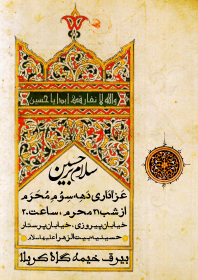 والله لا نفارقک ابدا یا حسین
سلام بر حسین
عزاداری دهه سوم محرم
از شب ۲۱ محرم، ساعت ۲۰
خیابان پیروزی، خیابان پرستار
حسینیه بیت الزهرا علیهاسلام
بیرق خیمه گاه کربلا